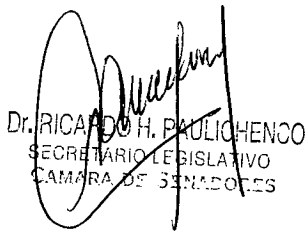 Dr. RICARDO H. PAULICHENCO
SECRETARIO LEGISLATIVO
CAMARA DE SENADORES